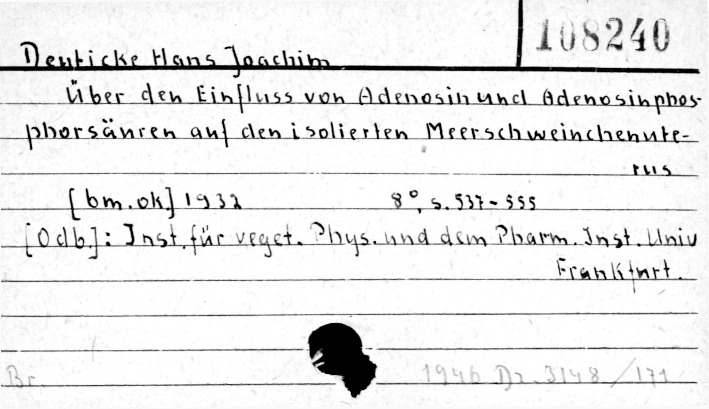 108240
Deuticke Hans Joachim
Über den Einfluss von Adenosin und Adenosinphos-
phorsäuren auf den isolierten Meerschweinchenute-
rus
[bm.ok] 1932 8°, s. 537-555
[Odb]: Inst. für veget. Phys. und dem Pharm. Inst. Univ
Frankfurt.
Br. 1946 Dz. 3148/171